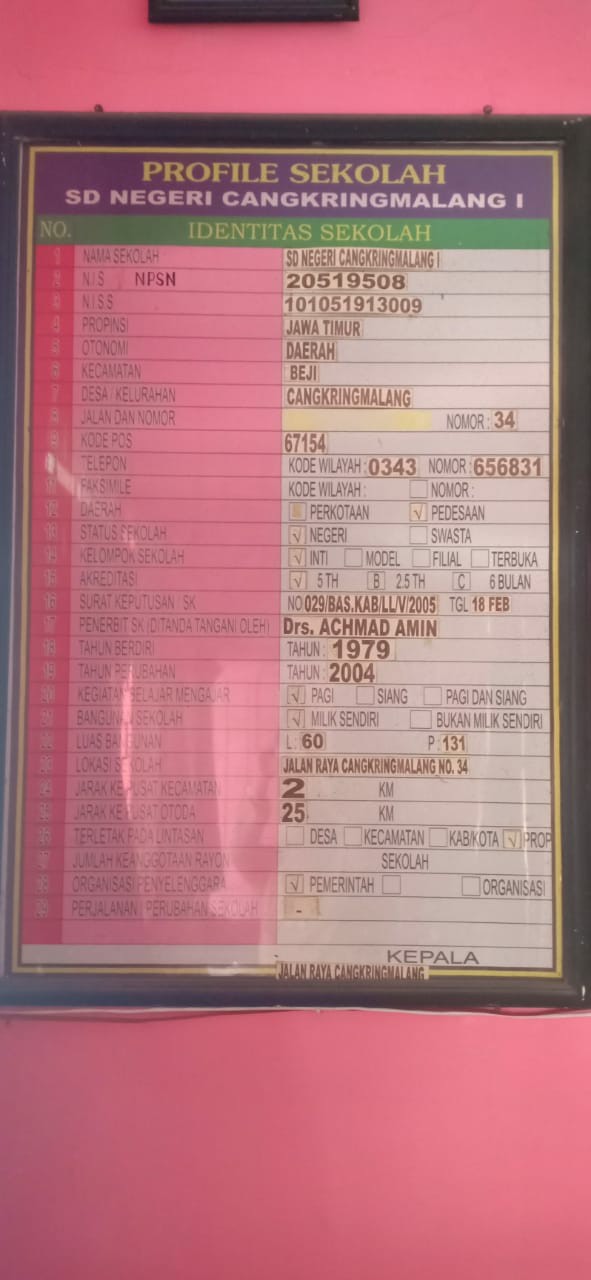 PROFILE SEKOLAH
SD NEGERI CANGKRINGMALANG I
NO. IDENTITAS SEKOLAH
1 NAMA SEKOLAH SD NEGERI CANGKRINGMALANG I
2 N.I.S NPSN 20519508
3 N.I.S.S 101051913009
4 PROPINSI JAWA TIMUR
5 OTONOMI DAERAH
6 KECAMATAN BEJI
7 DESA / KELURAHAN CANGKRINGMALANG
8 JALAN DAN NOMOR NOMOR : 34
9 KODE POS 67154
TELEPON KODE WILAYAH : 0343 NOMOR : 656831
11 FAKSIMILE KODE WILAYAH : NOMOR :
12 DAERAH PERKOTAAN √ PEDESAAN
13 STATUS SEKOLAH √ NEGERI SWASTA
14 KELOMPOK SEKOLAH √ INTI MODEL FILIAL TERBUKA
15 AKREDITASI √ 5 TH B 2.5 TH C 6 BULAN
16 SURAT KEPUTUSAN / SK NO 029/BAS.KAB/LL/V/2005 TGL 18 FEB
17 PENERBIT SK (DITANDA TANGANI OLEH) Drs. ACHMAD AMIN
18 TAHUN BERDIRI TAHUN : 1979
19 TAHUN PERUBAHAN TAHUN : 2004
20 KEGIATAN BELAJAR MENGAJAR √ PAGI SIANG PAGI DAN SIANG
21 BANGUNAN SEKOLAH √ MILIK SENDIRI BUKAN MILIK SENDIRI
22 LUAS BANGUNAN L : 60 P : 131
23 LOKASI SEKOLAH JALAN RAYA CANGKRINGMALANG NO. 34
24 JARAK KE PUSAT KECAMATAN 2 KM
25 JARAK KE PUSAT OTODA 25 KM
26 TERLETAK PADA LINTASAN DESA KECAMATAN KAB/KOTA √ PROP
27 JUMLAH KEANGGOTAAN RAYON SEKOLAH
28 ORGANISASI PENYELENGGARA √ PEMERINTAH ORGANISASI
29 PERJALANAN / PERUBAHAN SEKOLAH -
KEPALA
JALAN RAYA CANGKRINGMALANG